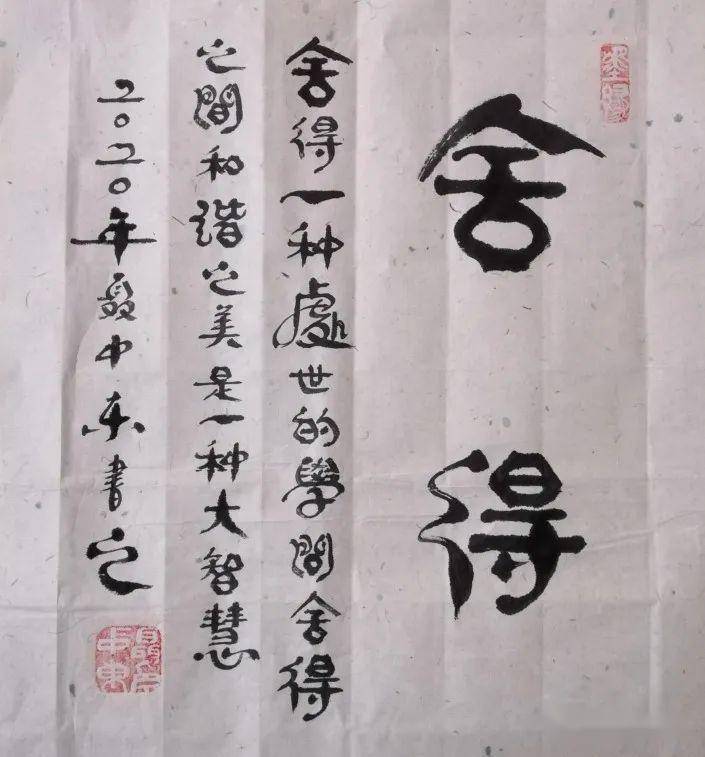 舍得
舍得一种處世的學問舍得
之間和諧之美是一种大智慧
二〇二〇年夏中东書之
墨缘